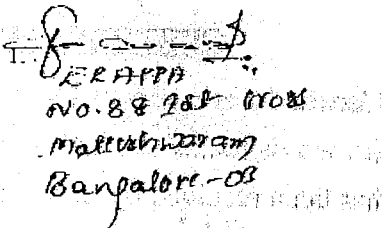 ERAPPA
No. 88 1st Cross
Malleshwaram
Bangalore - 03